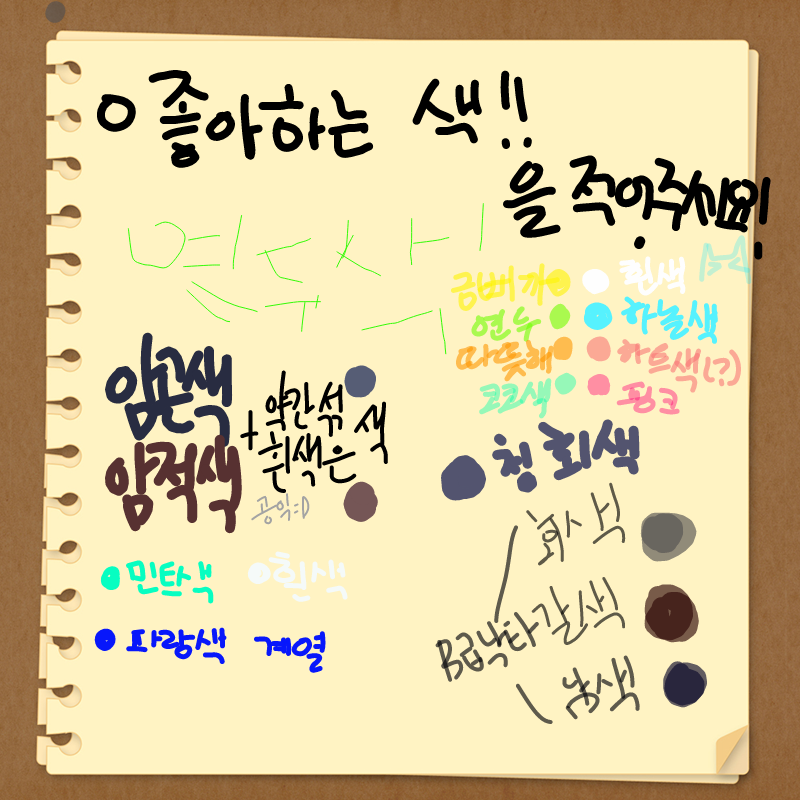 o 좋아하는 색!!
을 적어주세요!
연두색
금빼까
흰색
연두
하늘색
따뜻해
하트색(?)
코코색
핑크
암곤색
암적색
+ 약간 섞
흰색은 색
공익:D
청회색
회색
B급낙타갈색
남색
민트색
흰색
파랑색 계열